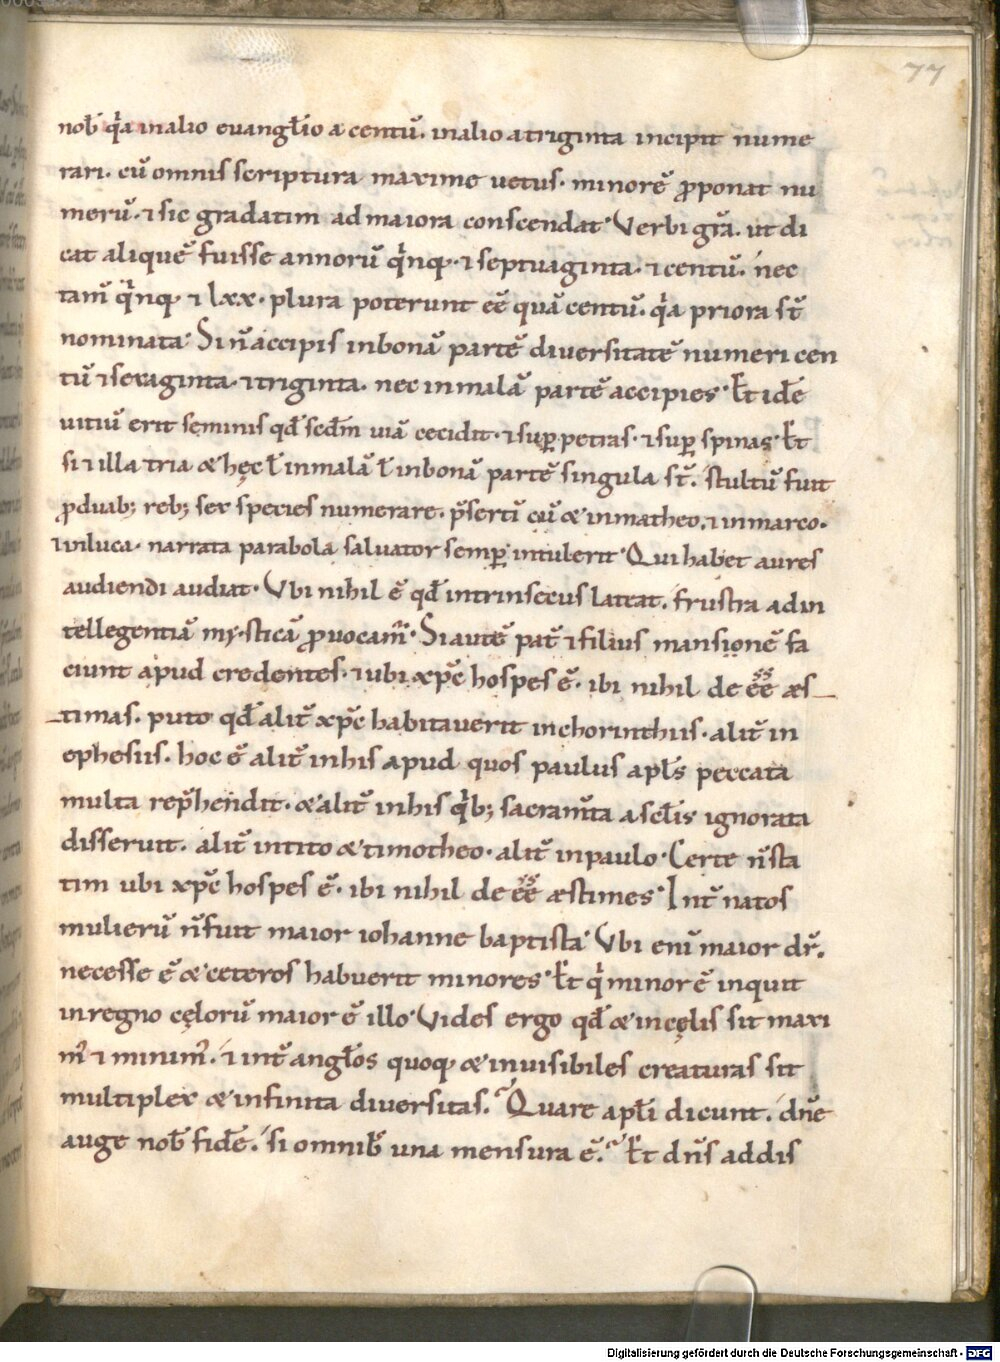 77
nob̄ qͥa in alio evangł̄io a centū. in alio a triginta incipit nume
rari. cū omnis scriptura maxime uetus. minorē ꝓponat nu
merū. ⁊ sic gradatim ad maiora conscendat. Verbi gr̄a. ut di
cat aliquē fuisse annorū qͥnqꝫ ⁊ septuaginta. ⁊ centū. nec
tam̄ qͥnqꝫ ⁊ lxx. plura poterunt eē quā centū. qͥa priora st̄
nominata. Si n̄ accipis in bonā partē diversitatē numeri cen
tū ⁊ sexaginta. ⁊ triginta. nec in malā partē accipies. Et idē
uitiū erit seminis qd̄ scdm̄ uiā cecidit. ⁊ suꝑ petras. ⁊ suꝑ spinas. Et
si ⁊ illa tria & hęc ł in malā ł in bonā partē singula st̄. stultū fuit
ꝓ duabꝫ rebꝫ sex species numerare. p̄sertī cū & in matheo. ⁊ in marco.
⁊ in luca. narrata parabola salvator semꝑ intulerit. Qui habet aures
audiendi audiat. Vbi nihil ē qd̄ intrinsecus lateat. frustra ad in
tellegentiā mysticā ꝓvocam̄. Si autē pat̄ ⁊ filius mansionē fa
ciunt apud credentes. ⁊ ubi xp̄c hospes ē. ibi nihil deēē æs
timas. puto qd̄ alit̄ xp̄c habitaverit in chorinthiis. alit̄ in
ephesiis. hoc ē alit̄ in his apud quos paulus apl̄s peccata
multa rep̄hendit. & alit̄ in his qͥbꝫ sacram̄ta a scl̄is ignorata
disseruit. alit̄ in tito & timotheo. alit̄ in paulo. Certe n̄ sta
tim ubi xp̄c hospes ē. ibi nihil deēē æstimes. Int̄ natos
mulierū n̄ fuit maior iohanne baptista. Vbi enī maior dr̄.
necesse ē & ceteros habuerit minores. Et qͥ minor ē inquit
in regno cęlorū maior ē illo. Vides ergo qd̄ & in cęlis sit maxi
m̄ ⁊ minim̄. ⁊ int̄ angł̄os quoqꝫ & invisibiles creaturas sit
multiplex & infinita diversitas. Quare apl̄i dicunt. dn̄e
auge nob̄ fidē. si omnib̄ una mensura ē. Et dn̄s addis
Digitalisierung gefördert durch die Deutsche Forschungsgemeinschaft - DFG